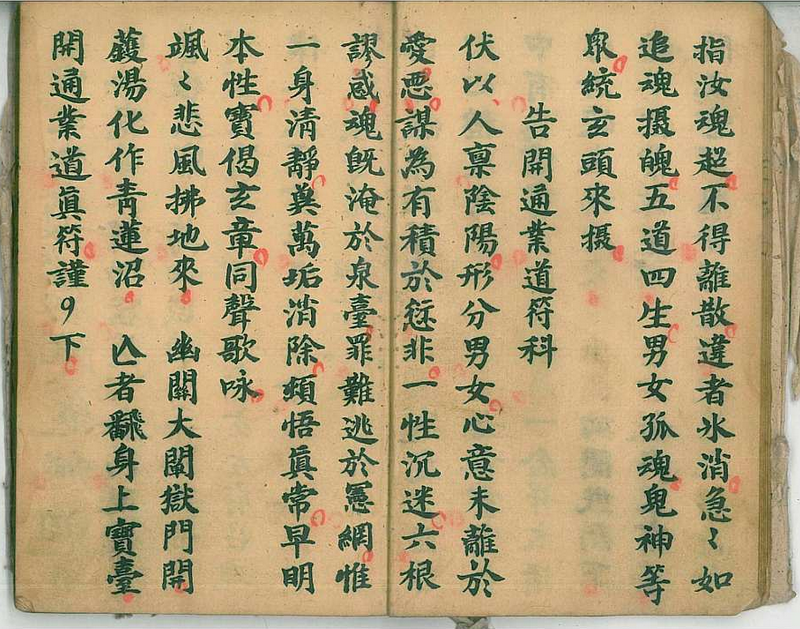 指汝魂超不得離散違者氷消急〻如
追魂摄魄五道四生男女孤魂鬼神等
衆統玄頭來摄
告開通業道符科
伏以人禀陰陽形分男女心意未離於
愛惡謀為有積於愆非一性沉迷六根
謬惑魂旣淹於泉臺罪難逃於憲網惟
一身清靜兾萬垢消除頓悟眞常早明
本性寶偈玄章同聲歌咏
颯〻悲風拂地來 幽關大闡獄門開
蠖湯化作青蓮沼 亾者翻身上寶臺
開通業道眞符謹9下